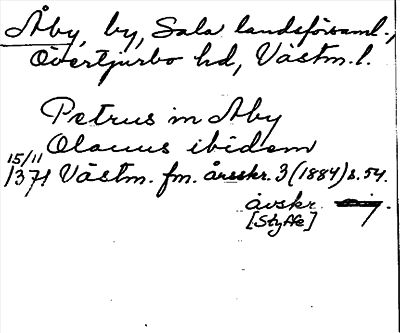 Åby, by, Sala landsförsaml.,
Övertjurbo hd, Västm. l.
Petrus in Aby
Olauus ibidem
15/11
1371 Västm. fm. årsskr. 3 (1884) s. 54.
avskr.
[Styffe]